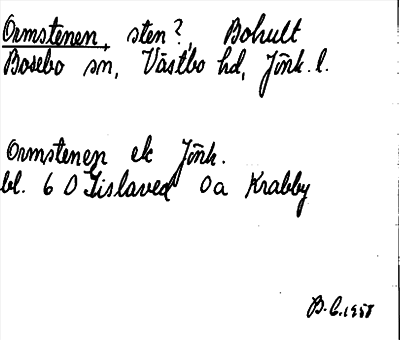 Ormstenen, sten?, Bohult
Bosebo sn, Västbo hd, Jönk. l.
Ormstenen ek Jönk.
bl. 6 O Gislaved Oa Krabby
B. C. 1958